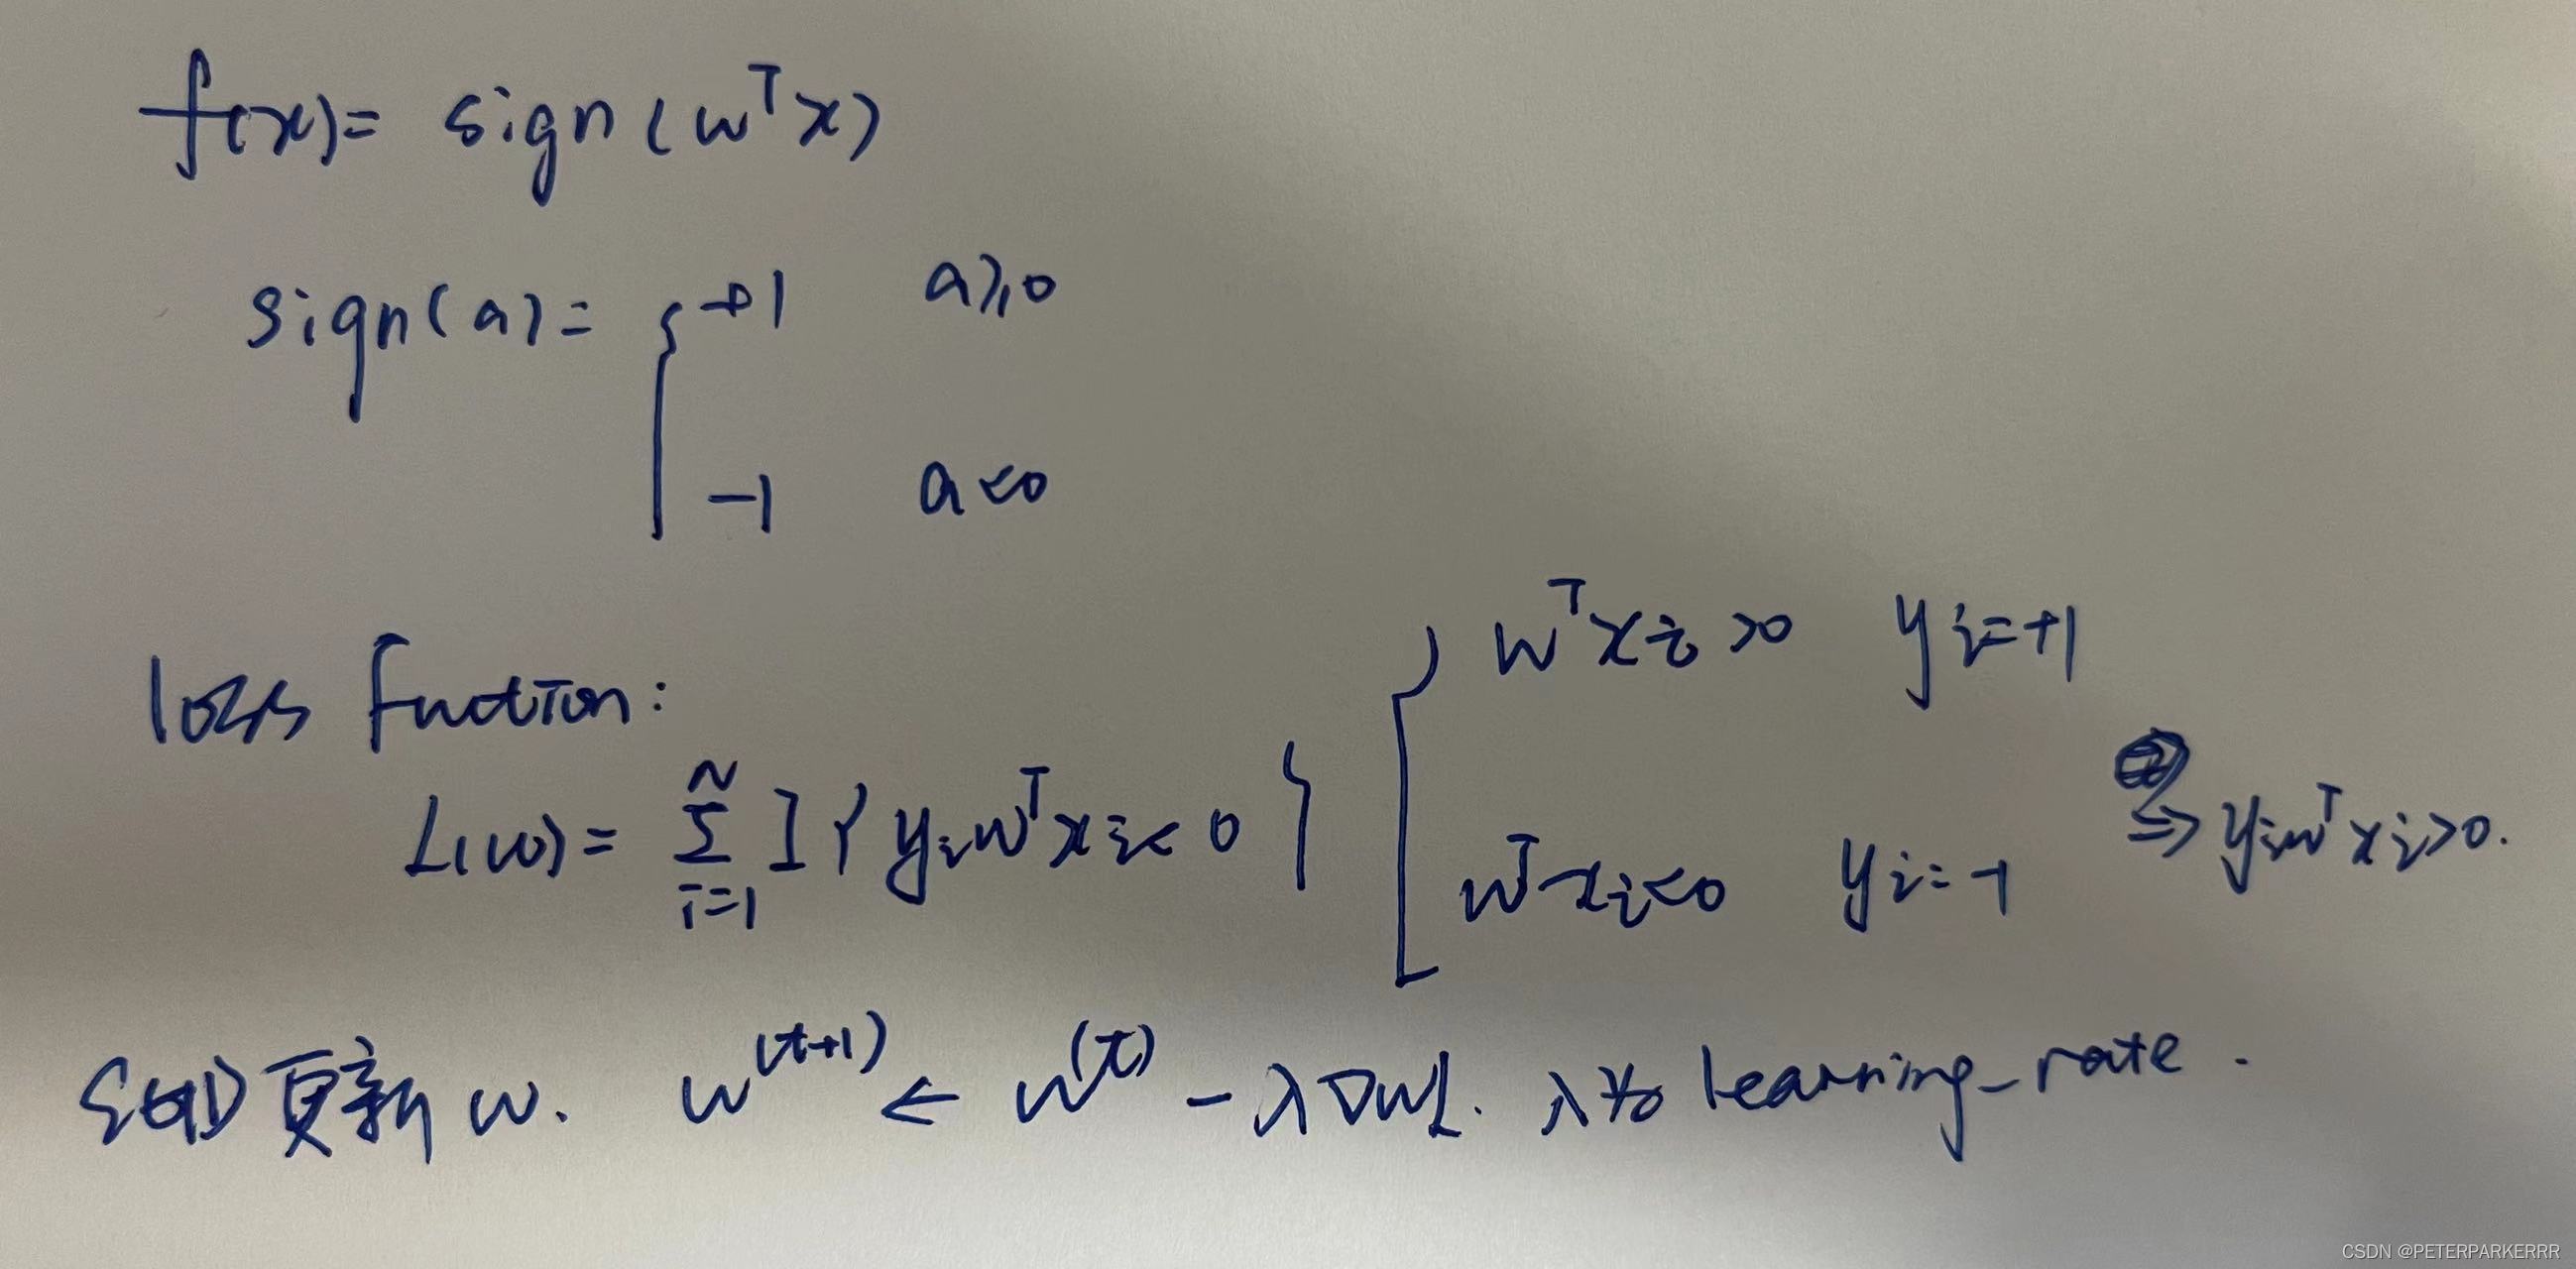 f(x)= sign(wᵀx)
sign(a)= { +1 a⩾0
-1 a<0
loss function:
L(w)= Σ_{i=1}^{N} I{ yᵢwᵀxᵢ< 0 }
{ wᵀxᵢ>0 yᵢ=+1
wᵀxᵢ<0 yᵢ=-1
⇒ yᵢwᵀxᵢ>0.
SGD更新 w. w⁽ᵗ⁺¹⁾ ← w⁽ᵗ⁾ - λ∇wL. λ为 learning_rate.
CSDN @PETERPARKERRR